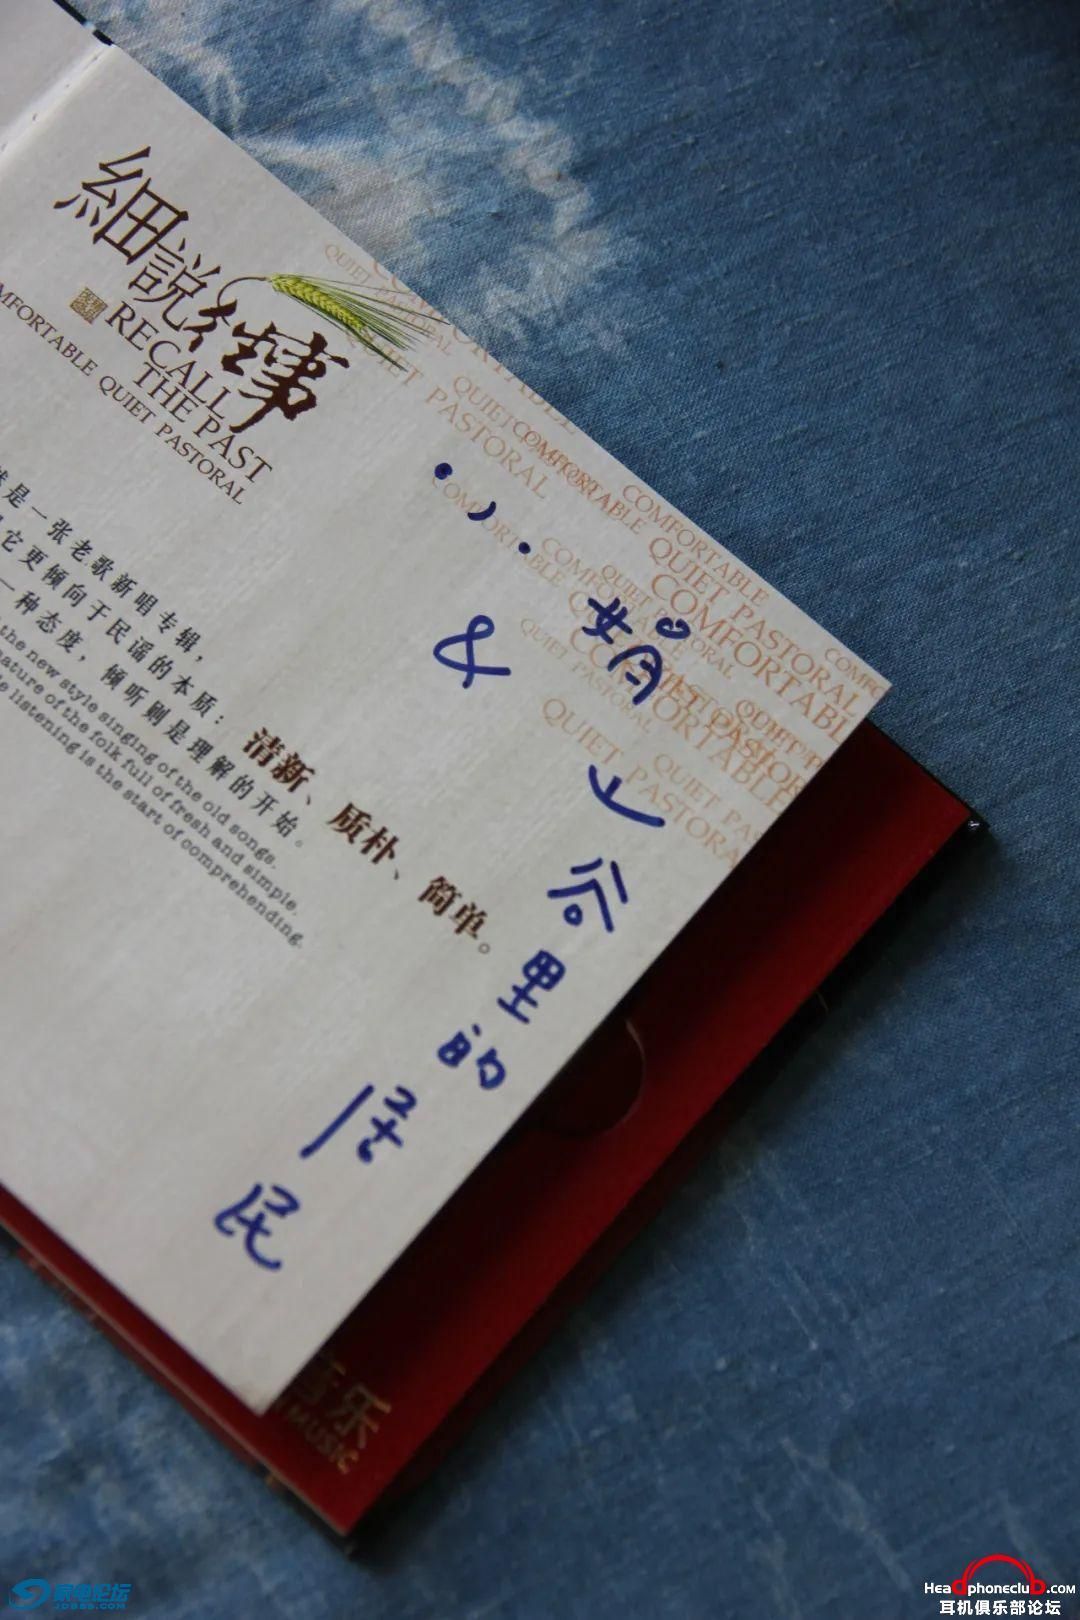 細説往事
RECALL
THE PAST
COMFORTABLE QUIET PASTORAL
是一张老歌新唱专辑，
它更倾向于民谣的本质：清新、质朴、简单。
一种态度，倾听则是理解的开始。
the new style singing of the old songs.
nature of the folk full of fresh and simple.
listening is the start of comprehending.
小娟
&
山谷里的居民
QUIET PASTORAL
COMFORTABLE
QUIET PASTORAL
COMFORTABLE
COMFORTABLE
QUIET PASTORAL
COMFORTABLE
QUIET PASTORAL
音乐
MUSIC
家电论坛
JDBBS.COM
Headphoneclub.com
耳机俱乐部论坛